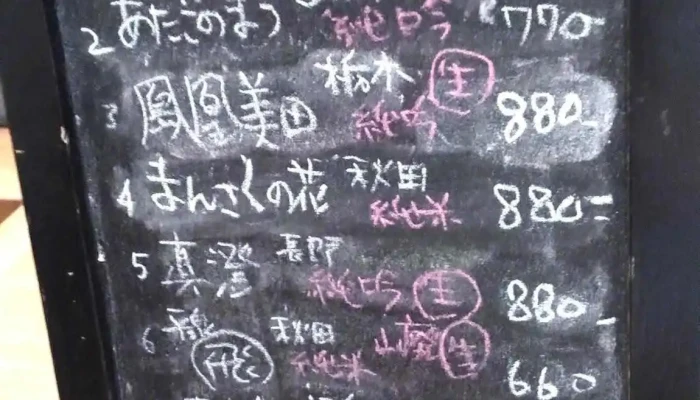 2 あたごのまつ 純吟 770-
3 鳳凰美田 栃木 純吟 生 880-
4 まんさくの花 秋田 純米 880=
5 真澄 長野 純吟 生 880-
6 秋田 純米 山廃 生 660